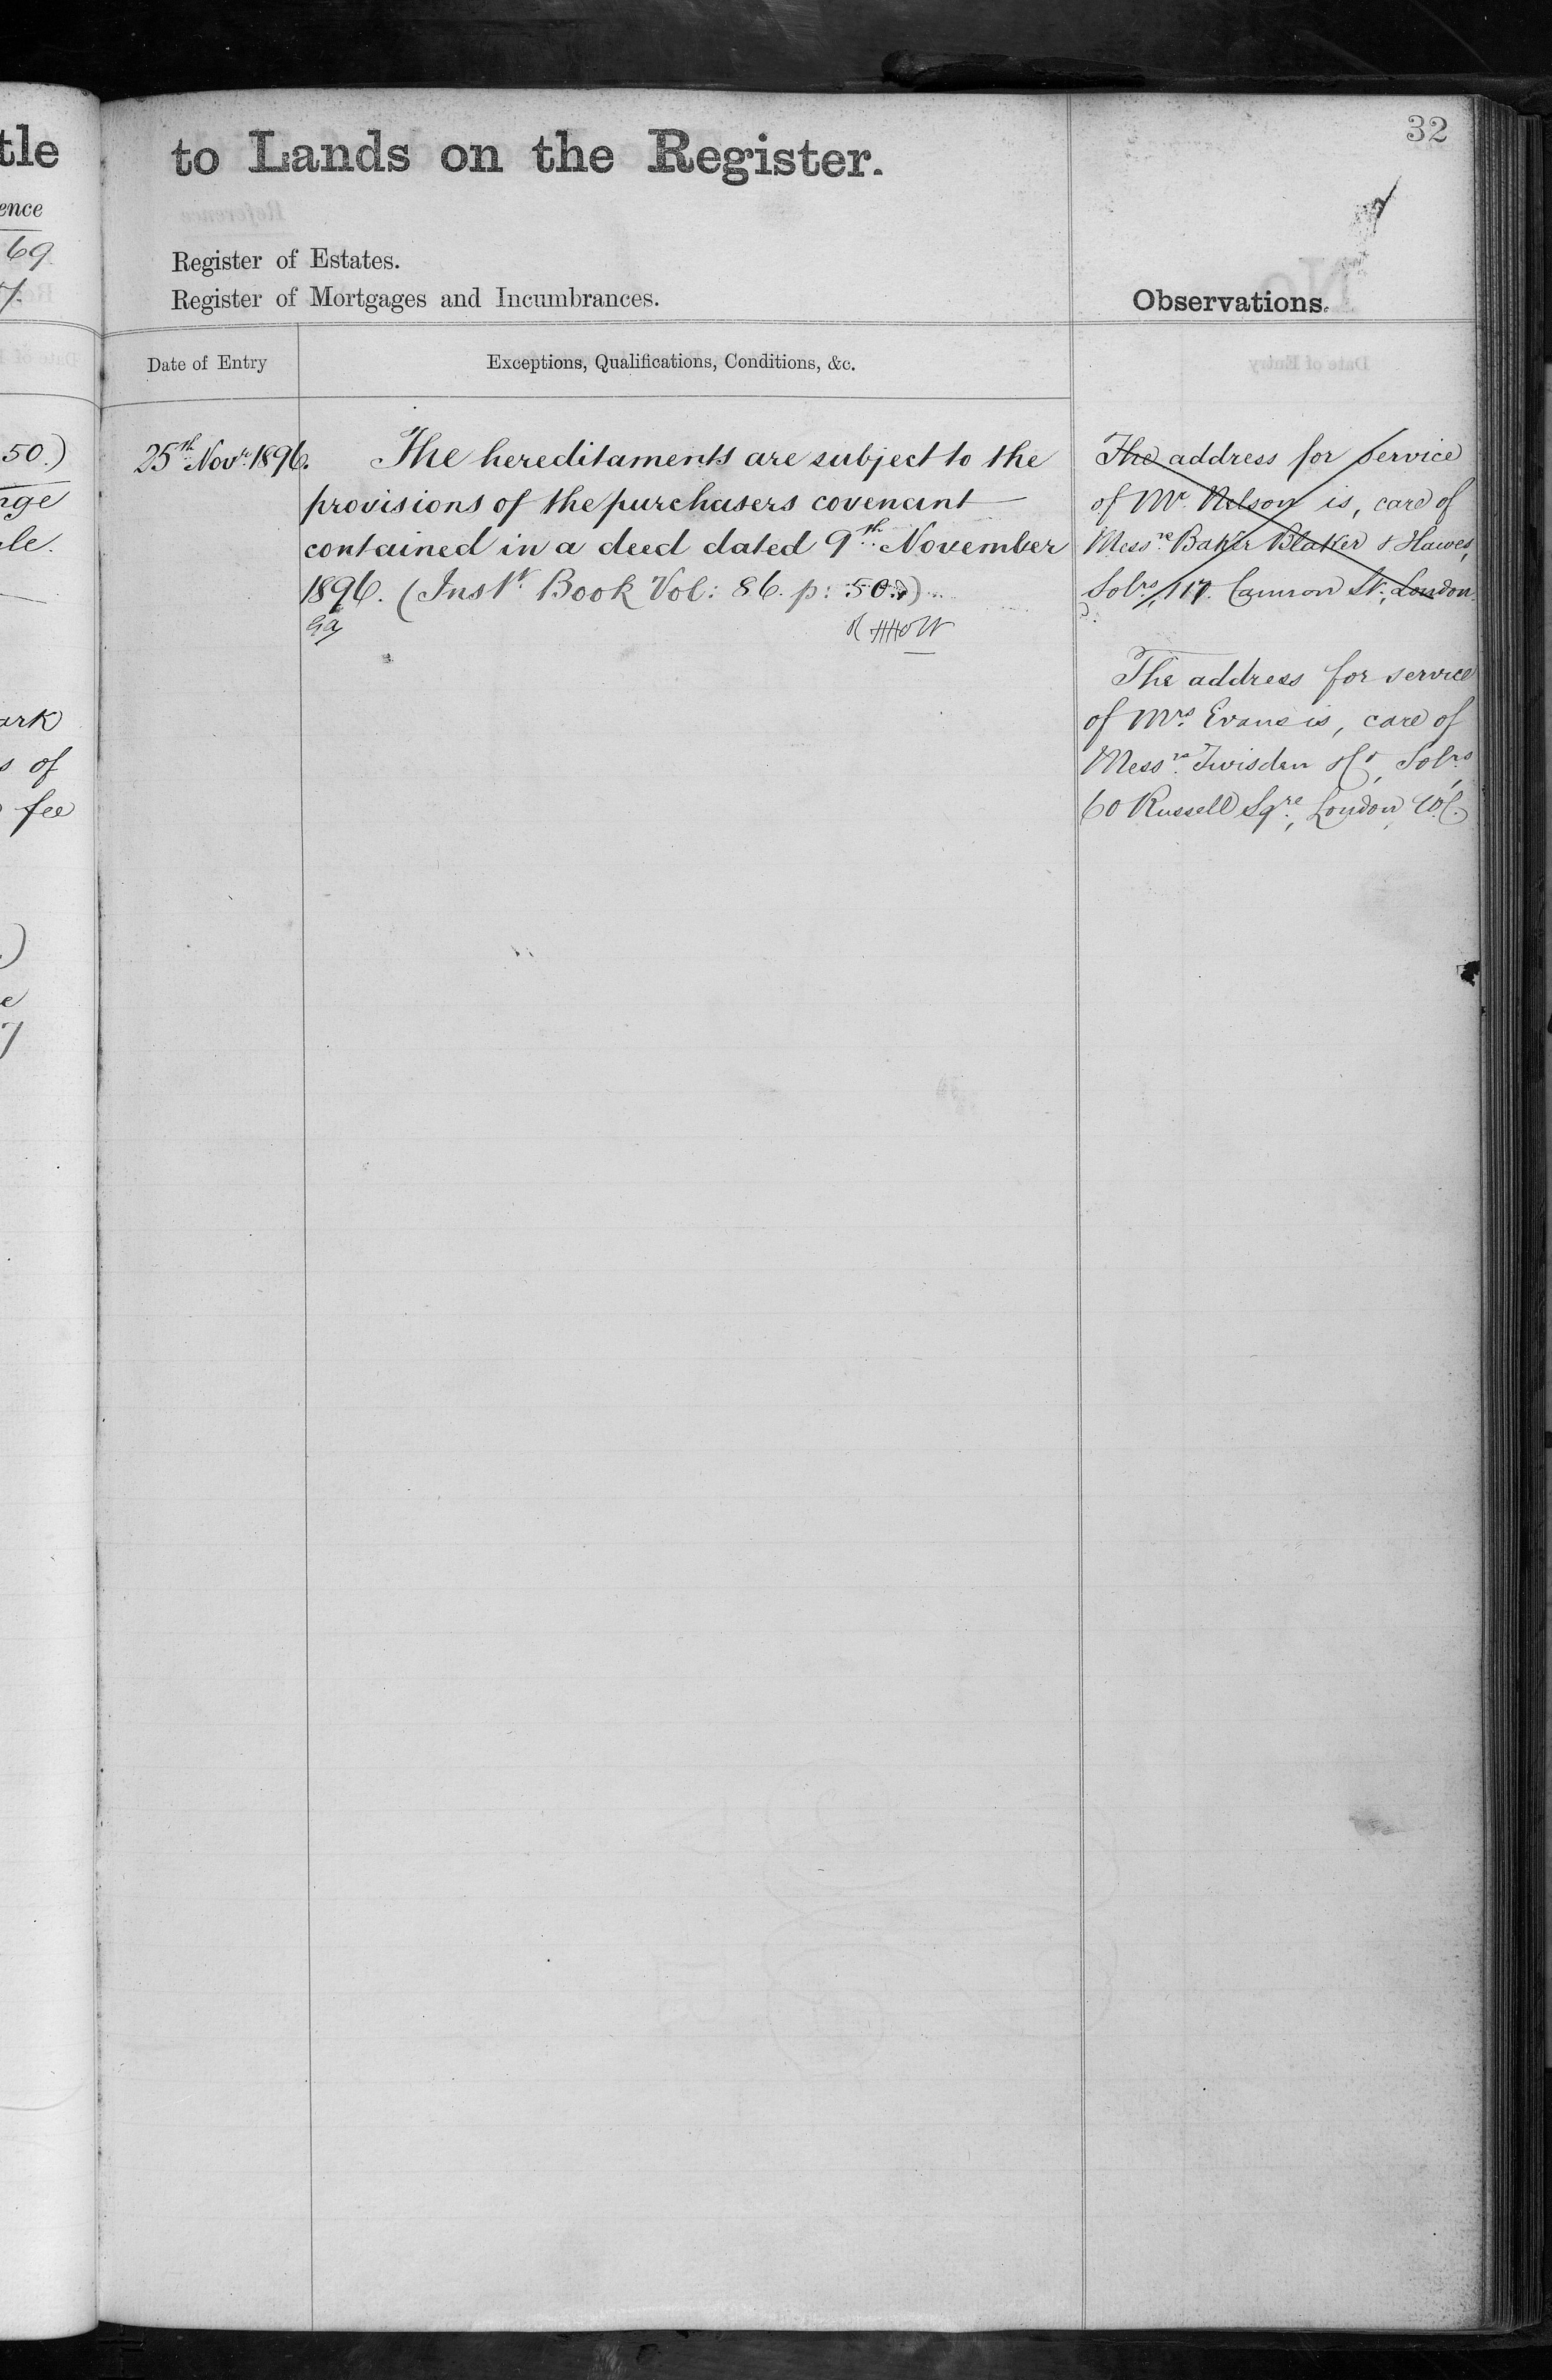 tle
ence
69
7.
50.)
nge
le.
ark
s of
fee
.)
e
7
32
to Lands on the Register.
Register of Estates.
Register of Mortgages and Incumbrances.
Observations.
Date of Entry
Exceptions, Qualifications, Conditions, &c.
25th Novr. 1896.
The hereditaments are subject to the
provisions of the purchasers covenant
contained in a deed dated 9th November
1896. (Instt. Book Vol: 86. p: 50.)
The address for service
of Mr. Nelson is, care of
Messrs. Baker Blaker & Hawes,
Solrs., 117. Cannon St., London.
The address for service
of Mrs. Evans is, care of
Messrs. Twisden & Co, Solrs.
60 Russell Sqre., London, W.C.